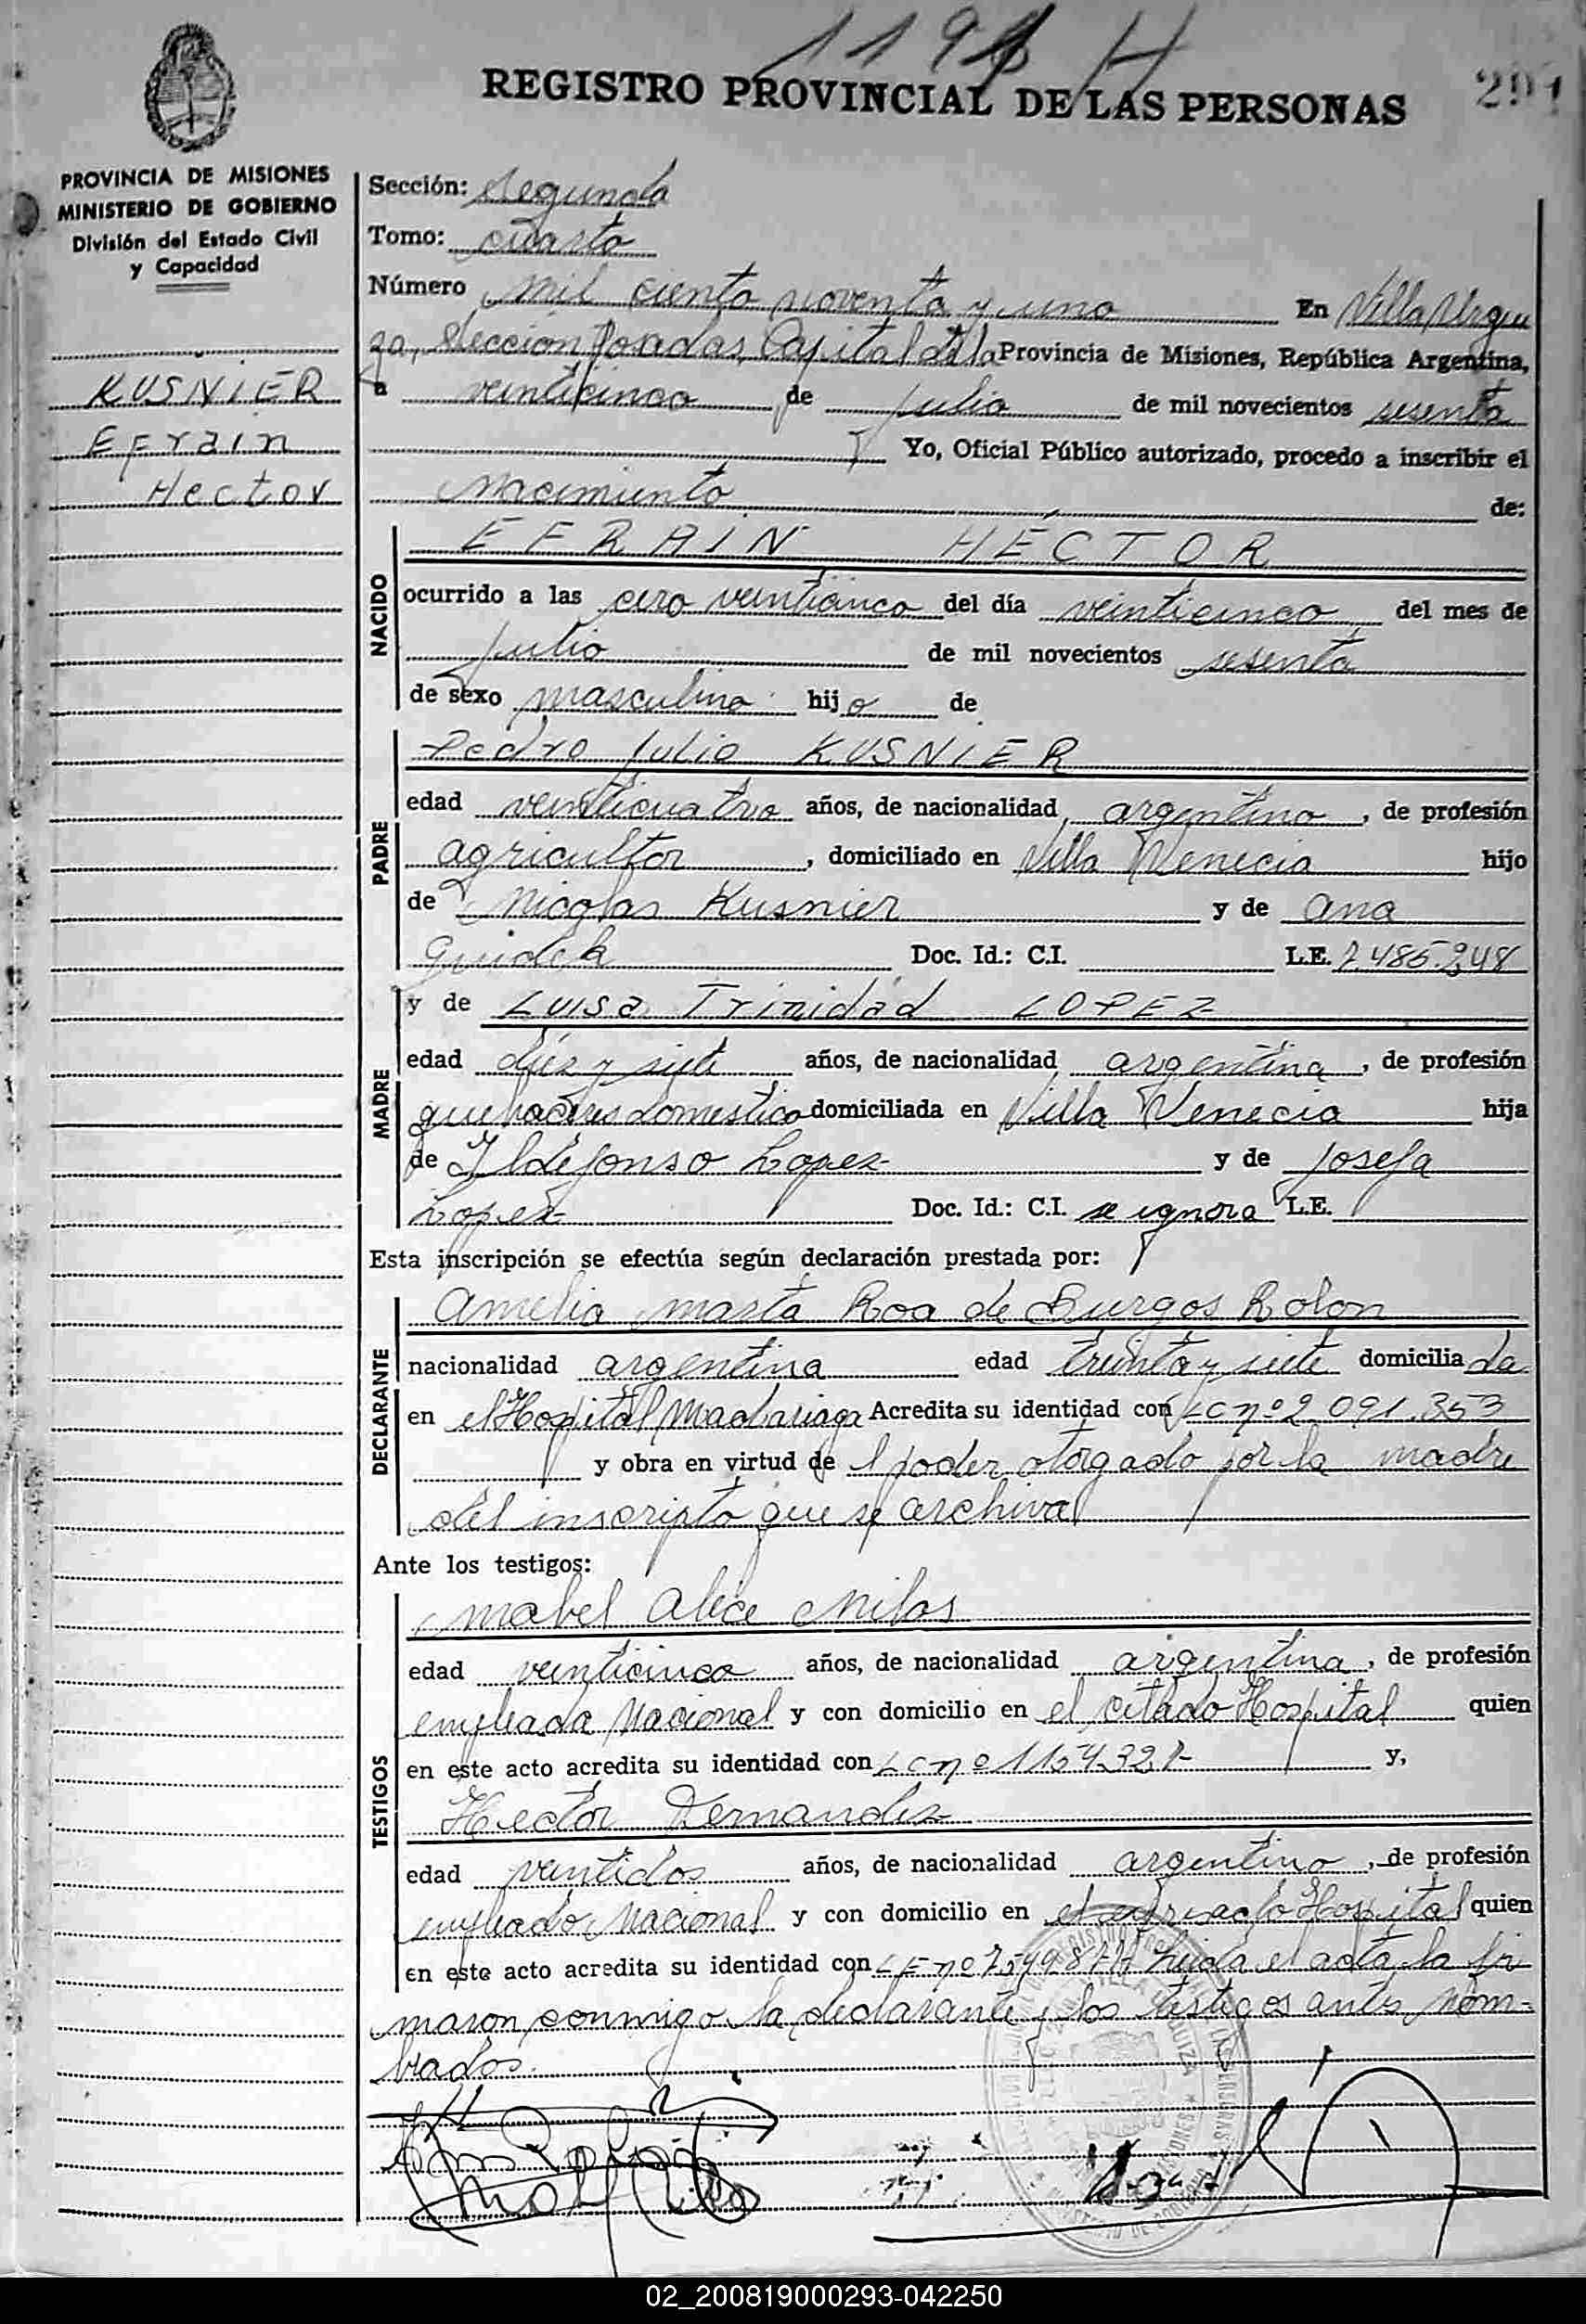 119 H
REGISTRO PROVINCIAL DE LAS PERSONAS
PROVINCIA DE MISIONES
MINISTERIO DE GOBIERNO
División del Estado Civil
y Capacidad
KUSNIER
Efrain
Hector
Sección: segunda
Tomo: cuarto
Número mil ciento noventa y uno En Villa Urqui
za, Sección Posadas, Capital de la Provincia de Misiones, República Argentina,
a veinticinco de julio de mil novecientos sesenta
Yo, Oficial Público autorizado, procedo a inscribir el
nacimiento de:
NACIDO
EFRAIN HÉCTOR
ocurrido a las cero veinticinco del día veinticinco del mes de
julio de mil novecientos sesenta
de sexo masculino hijo de
PADRE
Pedro Julio KUSNIER
edad veinticuatro años, de nacionalidad argentino, de profesión
agricultor, domiciliado en Villa Venecia hijo
de Nicolas Kusnier y de Ana
Doc. Id.: C.I. L.E. 7.485.248
MADRE
y de Luisa Trinidad LOPEZ
edad diez y siete años, de nacionalidad argentina, de profesión
quehaceres domestico domiciliada en Villa Venecia hija
de Ildefonso Lopez y de Josefa
Lopez Doc. Id.: C.I. se ignora L.E.
Esta inscripción se efectúa según declaración prestada por:
DECLARANTE
Amelia Marta Roa de Burgos Rolon
nacionalidad argentina edad treinta y siete domiciliada
en el Hospital Madariaga Acredita su identidad con LC nº 2.091.353
y obra en virtud de l poder otorgado por la madre
del inscripto que se archiva
Ante los testigos:
TESTIGOS
Mabel Alice Milos
edad veinticinco años, de nacionalidad argentina, de profesión
empleada Nacional y con domicilio en el citado Hospital quien
en este acto acredita su identidad con LC nº 1154321 y,
Hector Dernandez
edad veintidos años, de nacionalidad argentino, de profesión
empleado Nacional y con domicilio en el Hospital quien
en este acto acredita su identidad con LE nº Leida el acta la fir
maron conmigo la declarante y los testigos antes nom-
brados.
02_200819000293-042250